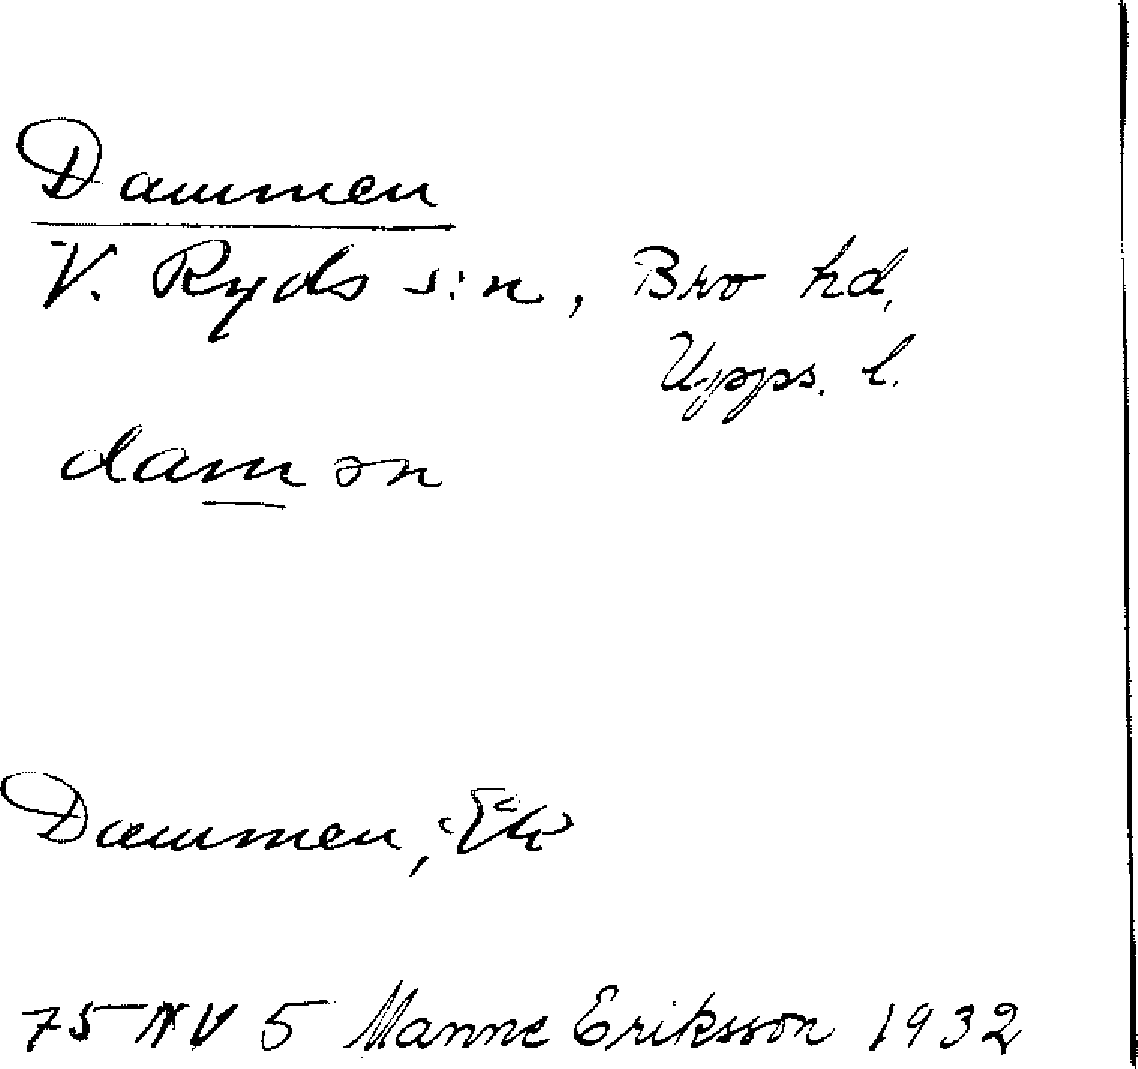 Dammen
V. Ryds s:n, Bro hd,
Upps. l.
damən
Dammen, Ek
75 NV 5 Manne Eriksson 1932